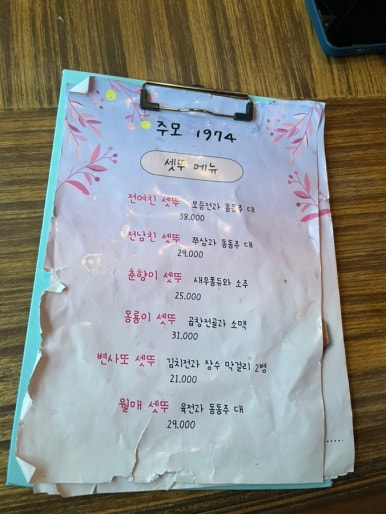 주모 1974
셋뚜 메뉴
전여친 셋뚜 모듬전과 동동주 대
38.000
전남친 셋뚜 쭈삼과 동동주 대
29.000
춘향이 셋뚜 새우퐁듀와 소주
25.000
몽룡이 셋뚜 곱창전골과 소맥
31.000
변사또 셋뚜 김치전과 장수 막걸리 2병
21.000
월매 셋뚜 육전과 동동주 대
29.000